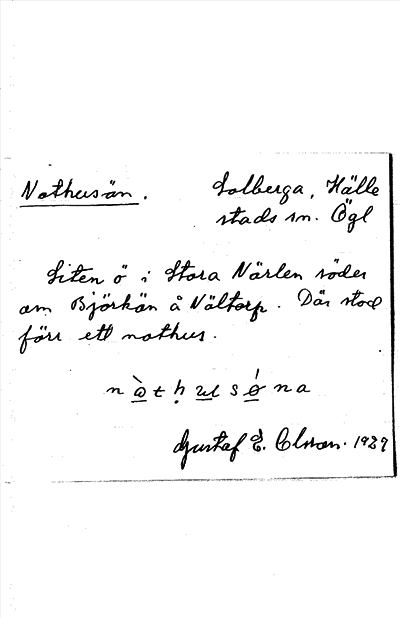 Nothusön. Solberga, Hälle
stads sn. Ögl
Liten ö i Stora Närlen söder
om Björkön å Vältorp. Där stod
förr ett nothus.
Gustaf E. Olsson. 1929